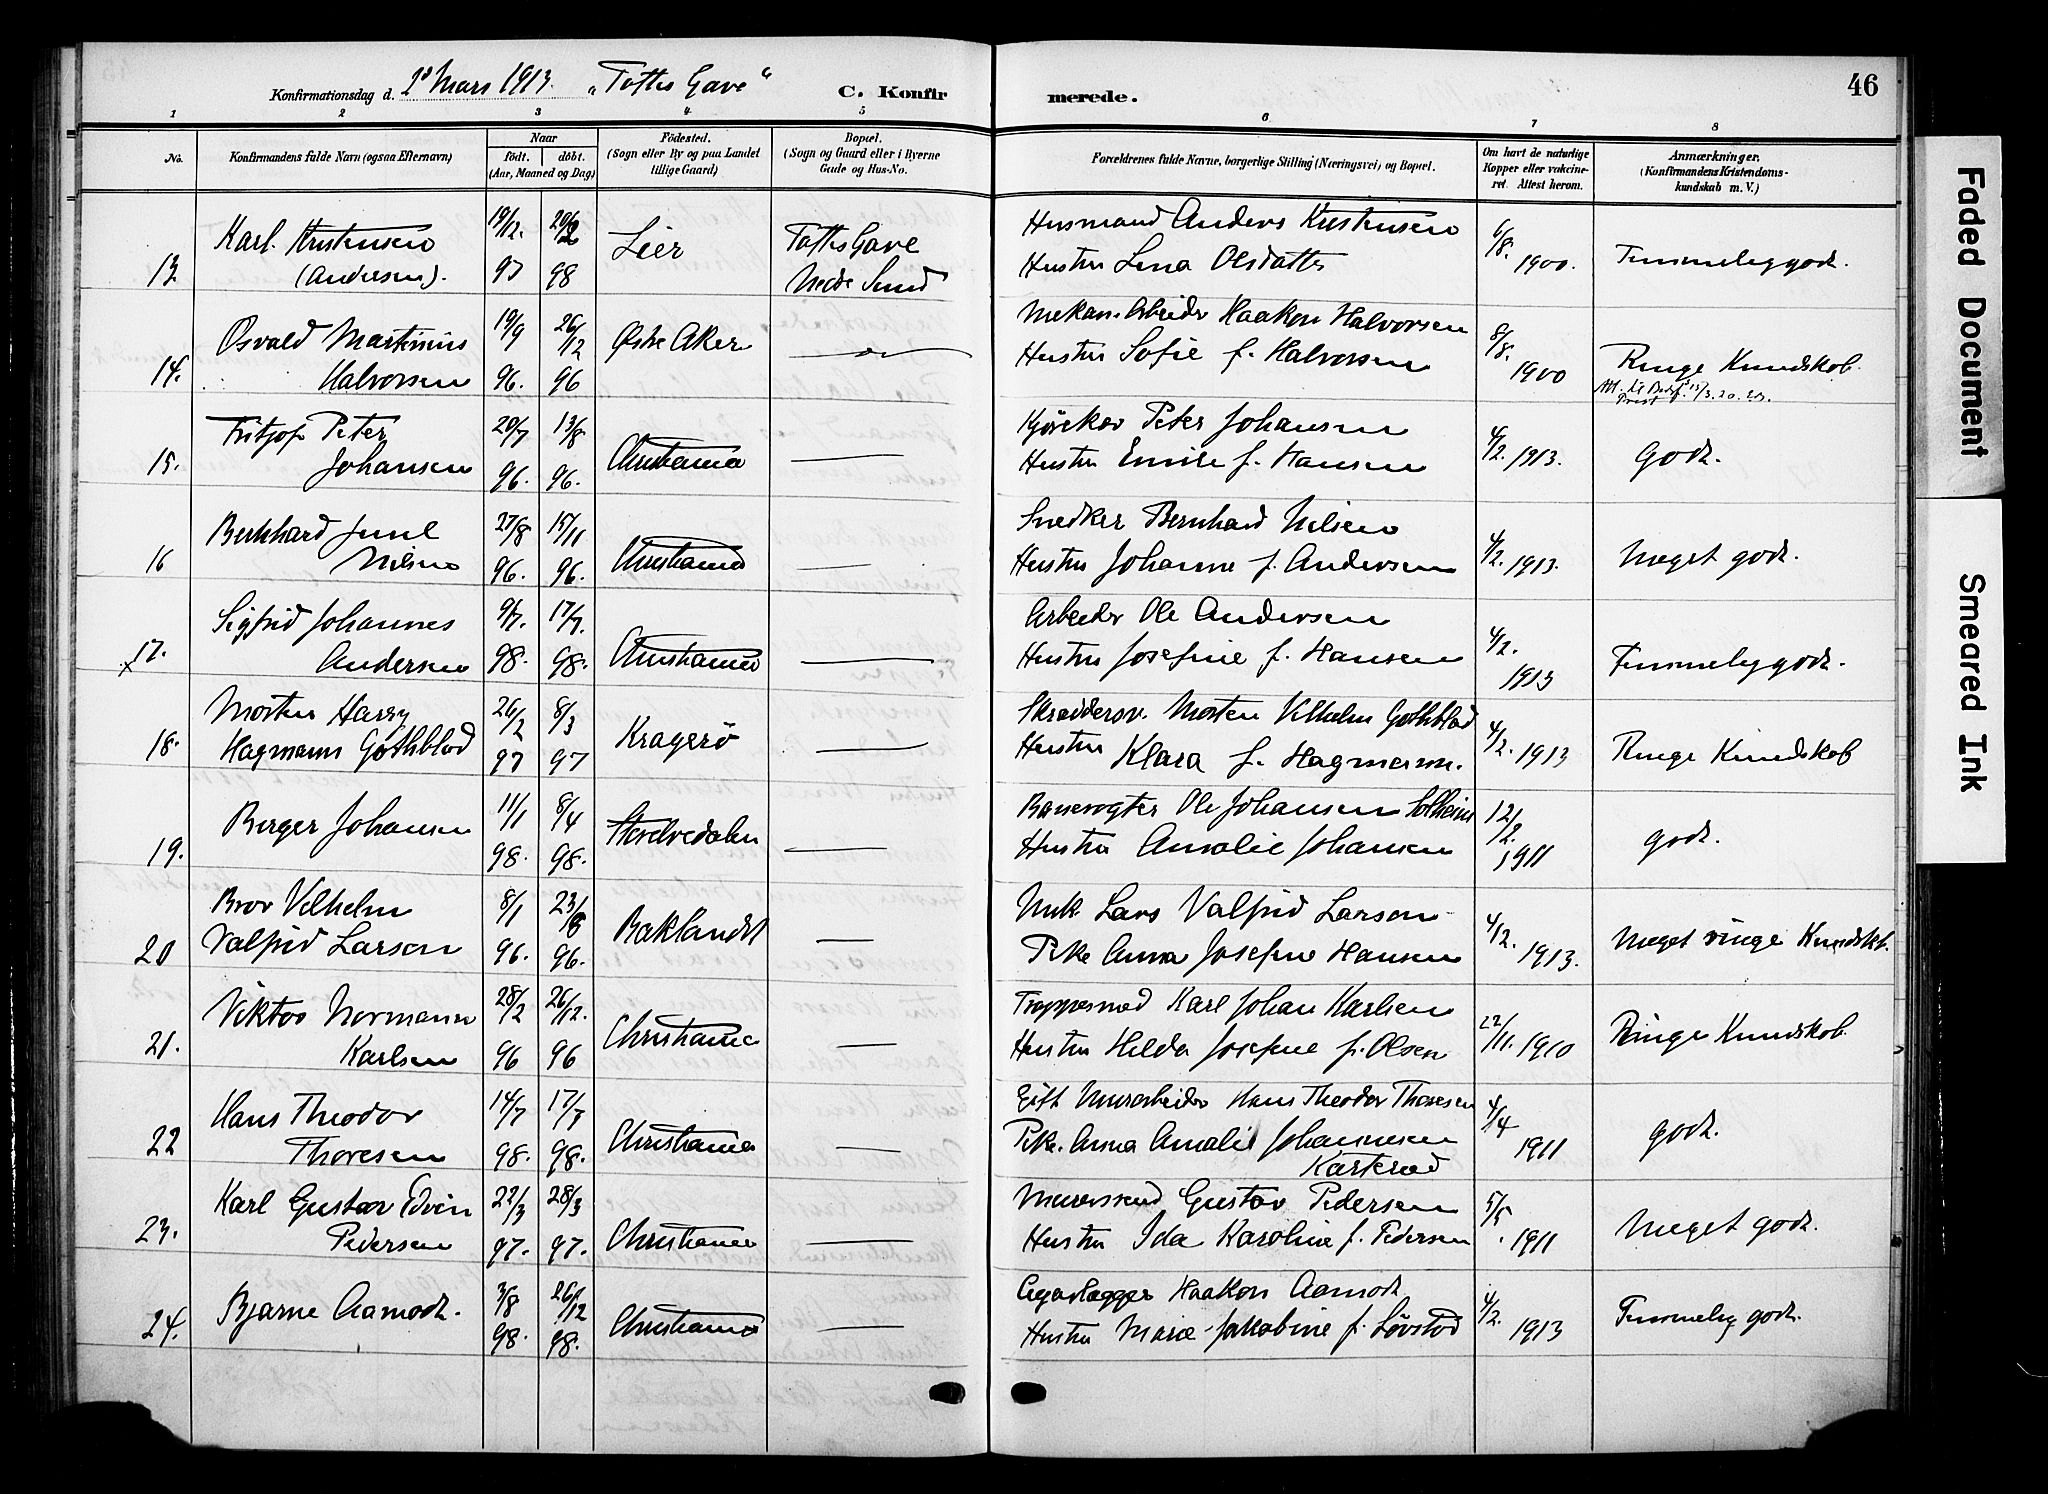 Konfirmationsdag d. 2' Mars 1913. „Toftes Gave“
C. Konfirmerede.
46
1 2 3 4 5 6 7 8
No.
Konfirmandens fulde Navn (ogsaa Efternavn)
Naar
födt. döbt.
(Aar, Maaned og Dag)
Födested.
(Sogn eller By og paa Landet
tillige Gaard)
Bopæl.
(Sogn og Gaard eller i Byerne
Gade og Hus-No.
Forældrenes fulde Navne, borgerlige Stilling (Næringsvei) og Bopæl.
Om havt de naturlige
Kopper eller vakcine-
ret. Attest herom.
Anmærkninger.
(Konfirmandens Kristendoms-
kundskab m. V.)
13 Karl Kristensen (Andersen). 19/12. 97 20/2 98 Lier Toftes Gave Nedre Sund
Husmand Anders Kristensen
Hustru Lina Olsdatter
6/8. 1900. Temmelig godt.
14. Osvald Martinius Halvorsen 19/9 96. 26/12 96 Østre Aker
Mekan. Arbeider Haakon Halvorsen
Hustru Sofie f. Halvorsen
8/8. 1900 Ringe Kundskab.
15. Fritjof Peter Johansen 20/7 96. 13/8 96. Christiania —
Kjørekar Peter Johansen
Hustru Emilie f. Hansen
4/2. 1913. Godt.
16 Bernhard Juul Nilsen 27/8 96. 15/11 96. Christiania —
Snedker Bernhard Nilsen
Hustru Johanne f. Andersen
4/2. 1913. Meget godt.
x 17. Sigfrid Johannes Andersen 9/7. 98. 17/7. 98. Christiania —
Arbeider Ole Andersen
Hustru Josefine f. Hansen
4/2. 1913 Temmelig godt.
18. Morten Harry Hagmann Gothblad 26/2 97 8/3 97 Kragerø —
Skræddersv. Morten Vilhelm Gothblad
Hustru Klara f. Hagmann.
4/2. 1913 Ringe Kundskab
19. Berger Johansen 11/1 98. 8/4 98. Storelvedalen —
Banevogter Ole Johansen Solheim
Hustru Amalie Johansen
12/2. 1911 godt.
20 Bror Vilhelm Valfrid Larsen 8/1 96. 23/8 96. Baklandet —
Lars Valfrid Larsen
Pike Anna Josefine Hansen
4/2. 1913. Meget ringe Kundskb.
21. Viktor Normann Karlsen 28/2 96 26/12. 96 Christiania —
Karl Johan Karlsen
Hustru Hilda Josefine f. Olsen
22/11. 1910 Ringe Kundskab
22 Hans Theodor Thoresen 14/7 98. 17/7 98. Christiania —
Gift Murarbeider Hans Theodor Thoresen
Pike. Anna Amalie Johannesen
4/4 1911 godt.
23. Karl Gustav Edvin Pedersen 22/3 97. 28/3 97. Christiania —
Murersvend Gustav Pedersen
Hustru Ida Karoline f. Pedersen
5/5. 1911 Meget godt.
24. Bjarne Aamodt. 3/8 98. 26/12 98. Christiania —
Haakon Aamodt
Hustru Marie Jakobine f. Løvstad
4/2. 1913 Temmelig godt.
Faded Document
Smeared Ink